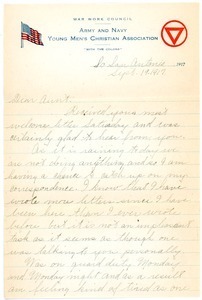 WAR WORK COUNCIL
ARMY AND NAVY
YOUNG MEN'S CHRISTIAN ASSOCIATION
"WITH THE COLORS"
San Antonio 191
Sept. 19, 1917
Dear Aunt:
Received your most
welcome letter Saturday and was
certainly glad to hear from you.
As it is raining to day we
are not doing anything and so I am
having a chance to catch up on my
correspondence. I know that I have
wrote more letters since I have
been here than I ever wrote
before but it is not an unpleasant
task as it seems as though one
was talking to you personally.
Was on guard duty Monday
and Monday night and as a result
am feeling kind of tired as one